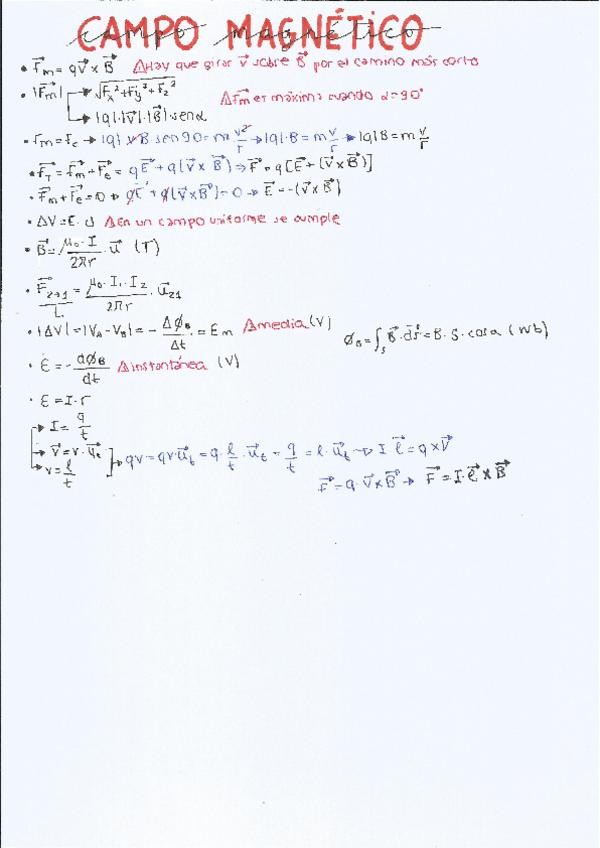 CAMPO MAGNÉTICO
campo magnético
• F⃗m = qv⃗ × B⃗ △Hay que girar v⃗ sobre B⃗ por el camino más corto
• |F⃗m| → √Fx² + Fy² + Fz²
→ |q|·|v⃗|·|B⃗| sen α △Fm es máxima cuando α = 90°
• Fm = Fc → |q| v B · sen 90 = m v²/r → |q|·B = m v/r → |q| B = m v/r
• F⃗T = F⃗m + F⃗e = qE⃗ + q(v⃗ × B⃗) ⇒ F⃗ = q[E⃗ + (v⃗ × B⃗)]
• F⃗m + F⃗e = 0 → qE⃗ + q(v⃗ × B⃗) = 0 → E⃗ = -(v⃗ × B⃗)
• ΔV = E · d △En un campo uniforme se cumple
• B⃗ = μ₀ · I / 2πr · u⃗ (T)
• F⃗2→1 / L = μ₀ · I₁ · I₂ / 2πr · u⃗21
• |ΔV| = |VA - VB| = - ΔØB / Δt = Em △media (V) ØB = ∫s B⃗ · ds⃗ = B · S · cos α (Wb)
• ε = - dØB / dt △instantánea (V)
• ε = I · r
→ I = q/t
→ v⃗ = v · u⃗t → qv = qv · u⃗t = q · l/t · u⃗t = q/t = l · u⃗t → I l⃗ = q × v⃗
→ v = l/t
F⃗ = q · v⃗ × B⃗ → F⃗ = I · l⃗ × B⃗